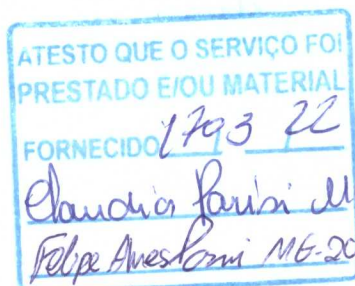 ATESTO QUE O SERVIÇO FOI
PRESTADO E/OU MATERIAL
FORNECIDO 17 03 22
Claudia Parisi M
Felipe MG-20